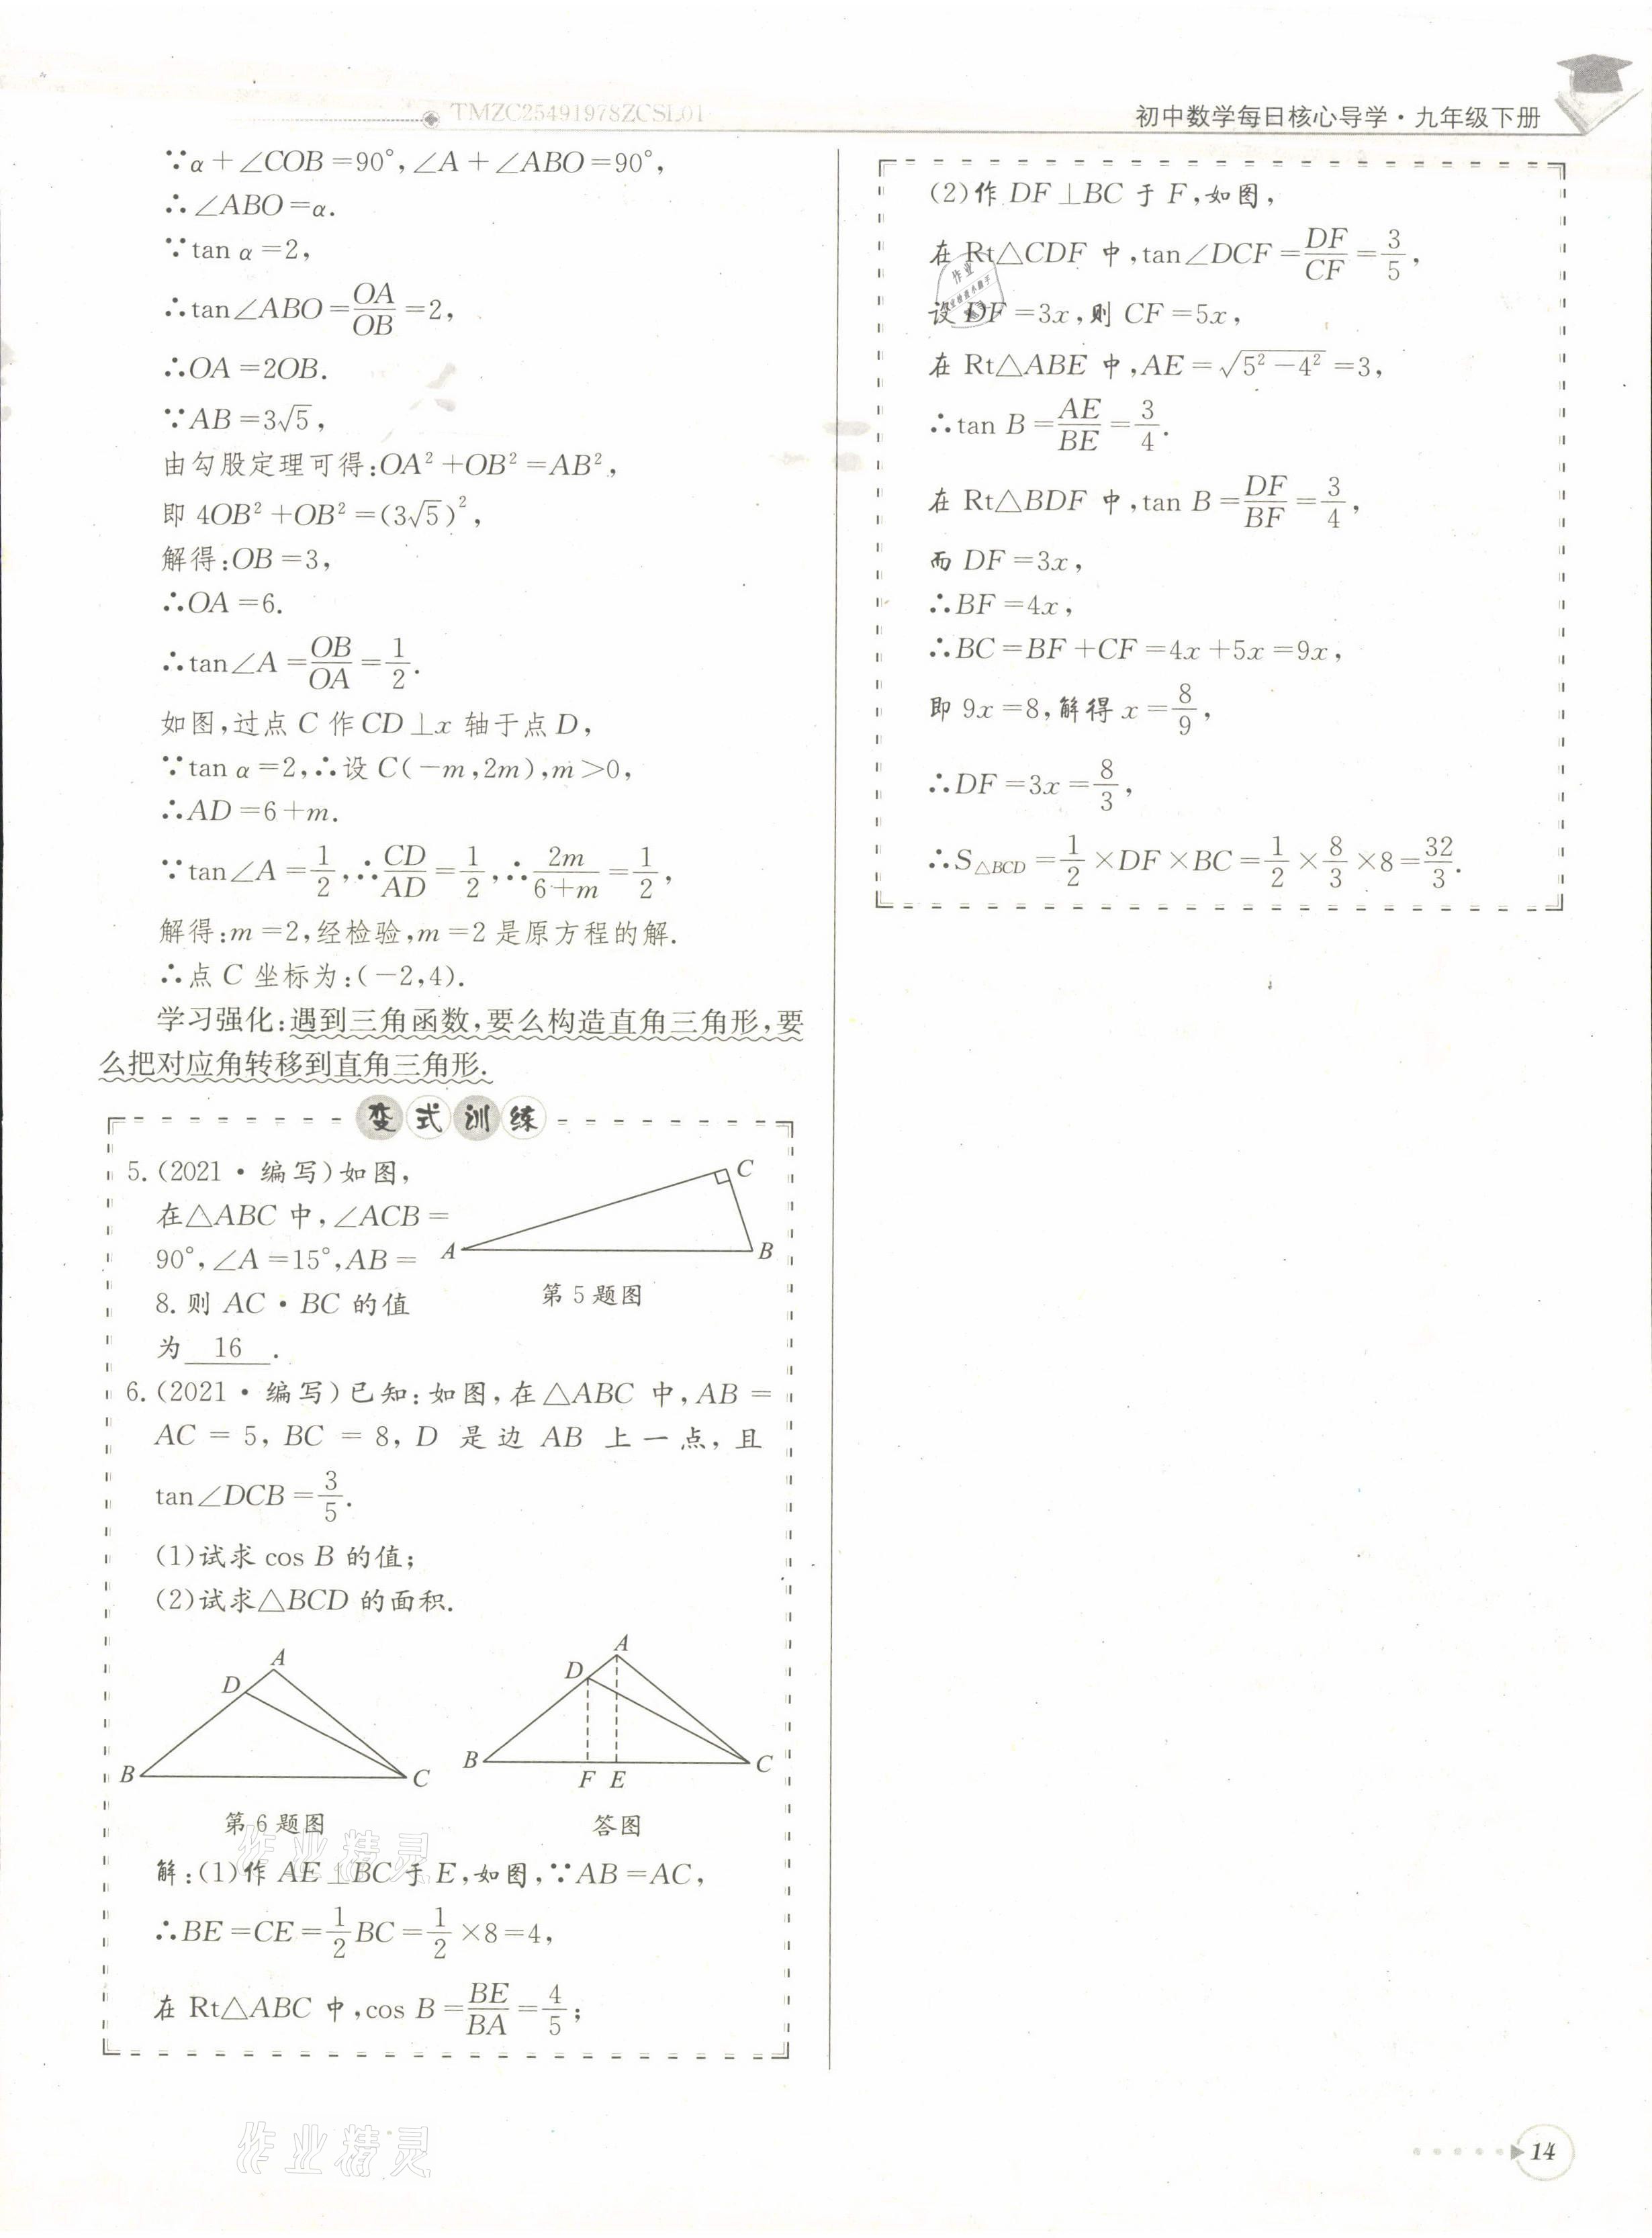 TMZC25491978ZCSL01
初中数学每日核心导学·九年级下册
∵α+∠COB=90°,∠A+∠ABO=90°,
∴∠ABO=α.
∵tan α=2,
∴tan∠ABO=OA/OB=2,
∴OA=2OB.
∵AB=3√5,
由勾股定理可得:OA²+OB²=AB²,
即 4OB²+OB²=(3√5)²,
解得:OB=3,
∴OA=6.
∴tan∠A=OB/OA=1/2.
如图,过点 C 作 CD⊥x 轴于点 D,
∵tan α=2,∴设 C(-m,2m),m>0,
∴AD=6+m.
∵tan∠A=1/2,∴CD/AD=1/2,∴2m/(6+m)=1/2,
解得:m=2,经检验,m=2 是原方程的解.
∴点 C 坐标为:(-2,4).
学习强化:遇到三角函数,要么构造直角三角形,要
么把对应角转移到直角三角形.
变式训练
5.(2021·编写)如图,
在△ABC 中,∠ACB=
90°,∠A=15°,AB=
8. 则 AC·BC 的值
为 16 .
A
B
C
第 5 题图
6.(2021·编写)已知:如图,在△ABC 中,AB=
AC=5,BC=8,D 是边 AB 上一点,且
tan∠DCB=3/5.
(1)试求 cos B 的值;
(2)试求△BCD 的面积.
A
D
B
C
第 6 题图
A
D
B
C
F E
答图
解:(1)作 AE⊥BC 于 E,如图,∵AB=AC,
∴BE=CE=1/2BC=1/2×8=4,
在 Rt△ABC 中,cos B=BE/BA=4/5;
(2)作 DF⊥BC 于 F,如图,
在 Rt△CDF 中,tan∠DCF=DF/CF=3/5,
设 DF=3x,则 CF=5x,
在 Rt△ABE 中,AE=√(5²-4²)=3,
∴tan B=AE/BE=3/4.
在 Rt△BDF 中,tan B=DF/BF=3/4,
而 DF=3x,
∴BF=4x,
∴BC=BF+CF=4x+5x=9x,
即 9x=8,解得 x=8/9,
∴DF=3x=8/3,
∴S△BCD=1/2×DF×BC=1/2×8/3×8=32/3.
作业精灵
作业精灵
14